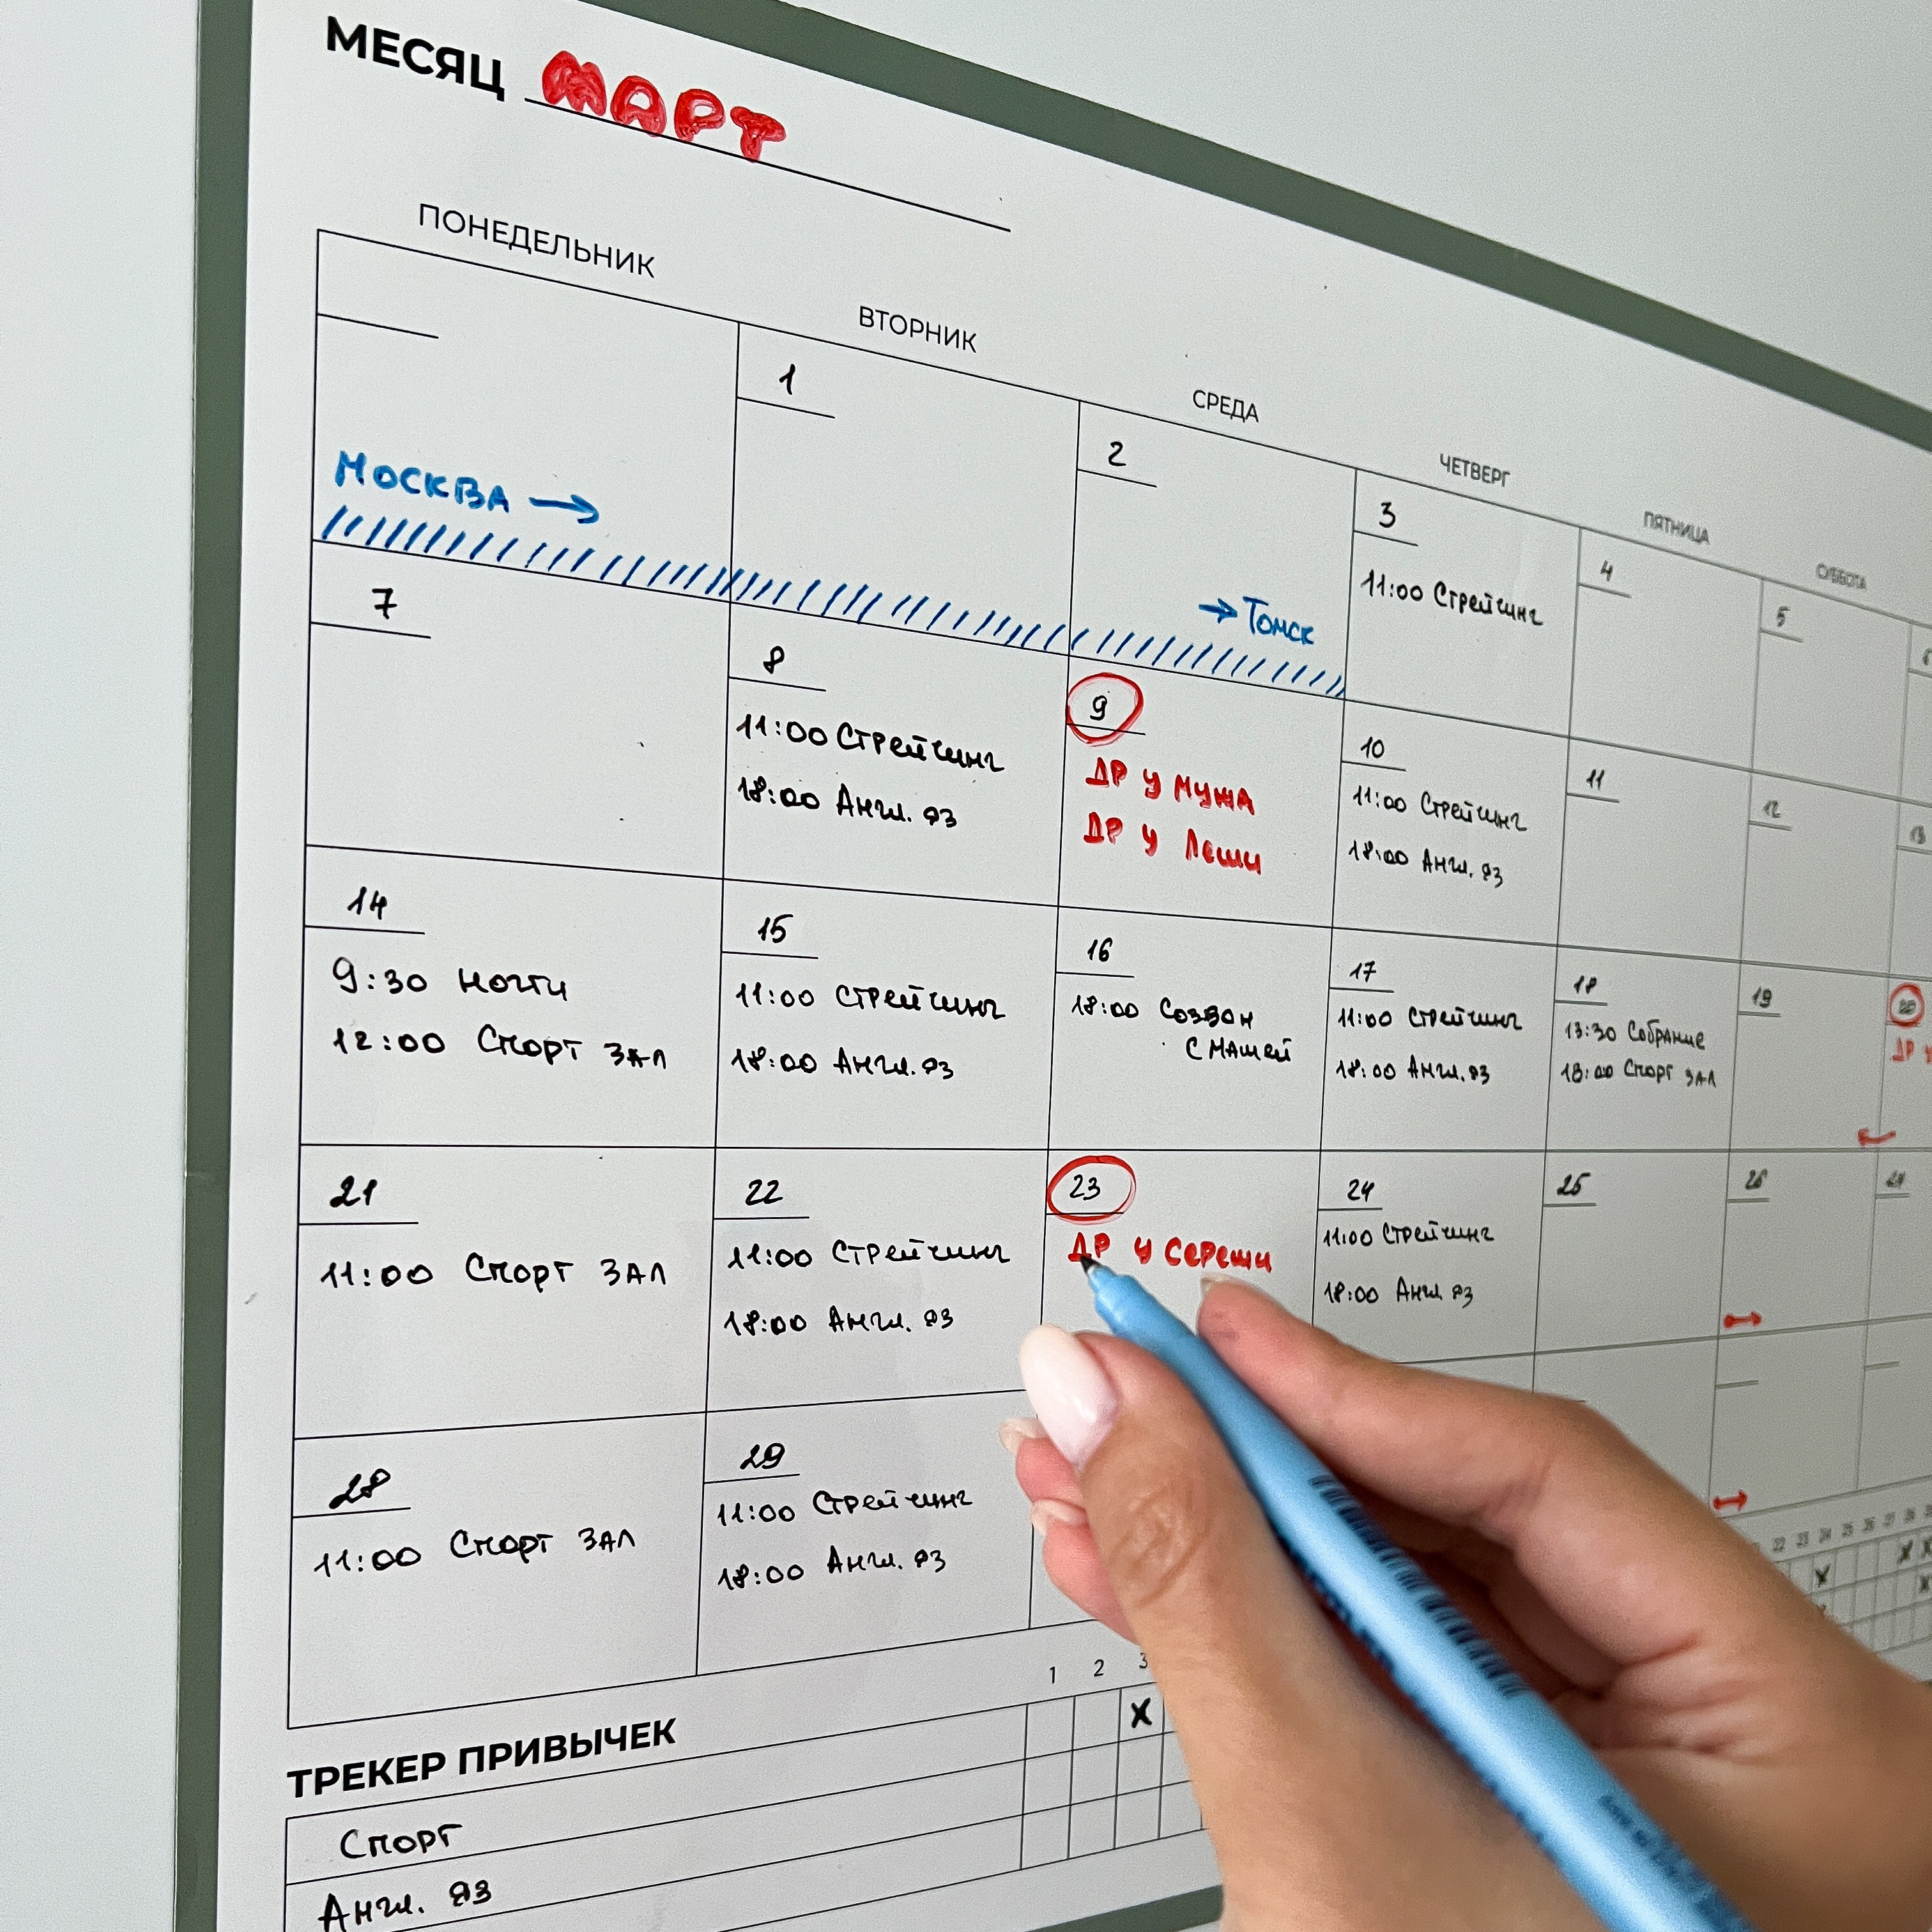 МЕСЯЦ МАРТ
ПОНЕДЕЛЬНИК
ВТОРНИК
СРЕДА
ЧЕТВЕРГ
ПЯТНИЦА
СУББОТА
Москва →
1
2
→ Томск
3
11:00 Стрейчинг
4
5
7
8
11:00 Стрейчинг
18:00 Англ. яз
9
ДР у мужа
ДР у Леши
10
11:00 Стрейчинг
18:00 Англ. яз
11
12
13
14
9:30 Ногти
12:00 Спорт зал
15
11:00 Стрейчинг
18:00 Англ. яз
16
18:00 Созвон
с Машей
17
11:00 Стрейчинг
18:00 Англ. яз
18
13:30 Собрание
18:00 Спорт зал
19
20
ДР у
21
11:00 Спорт зал
22
11:00 Стрейчинг
18:00 Англ. яз
23
ДР у Сережи
24
11:00 Стрейчинг
18:00 Англ. яз
25
26
28
11:00 Спорт зал
29
11:00 Стрейчинг
18:00 Англ. яз
ТРЕКЕР ПРИВЫЧЕК
1 2 3
22 23 24 25 26 27 28
Спорт
Англ. яз